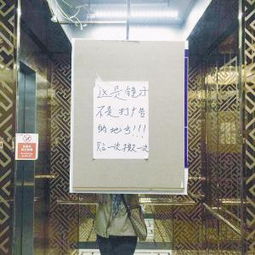 这是镜子
不是打广告
的地方!!!
贴一次撕一次